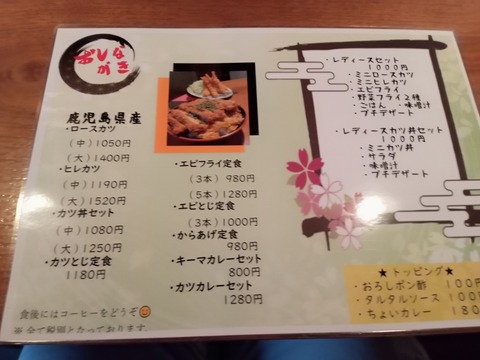 おしながき
鹿児島県産
・ロースカツ
(中)1050円
(大)1400円
・ヒレカツ
(中)1190円
(大)1520円
・カツ丼セット
(中)1080円
(大)1250円
・カツとじ定食
1180円
食後にはコーヒーをどうぞ
※全て税別となっております
・エビフライ定食
(3本)980円
(5本)1280円
・エビとじ定食
(3本)1000円
・からあげ定食
980円
・キーマカレーセット
800円
・カツカレーセット
1280円
・レディースセット
1000円
・ミニロースカツ
・ミニヒレカツ
・エビフライ
・野菜フライ2種
・ごはん ・味噌汁
・プチデザート
・レディースカツ丼セット
1000円
・ミニカツ丼
・サラダ
・味噌汁
・プチデザート
★トッピング★
・おろしポン酢 100円
・タルタルソース 100円
・ちょいカレー 180